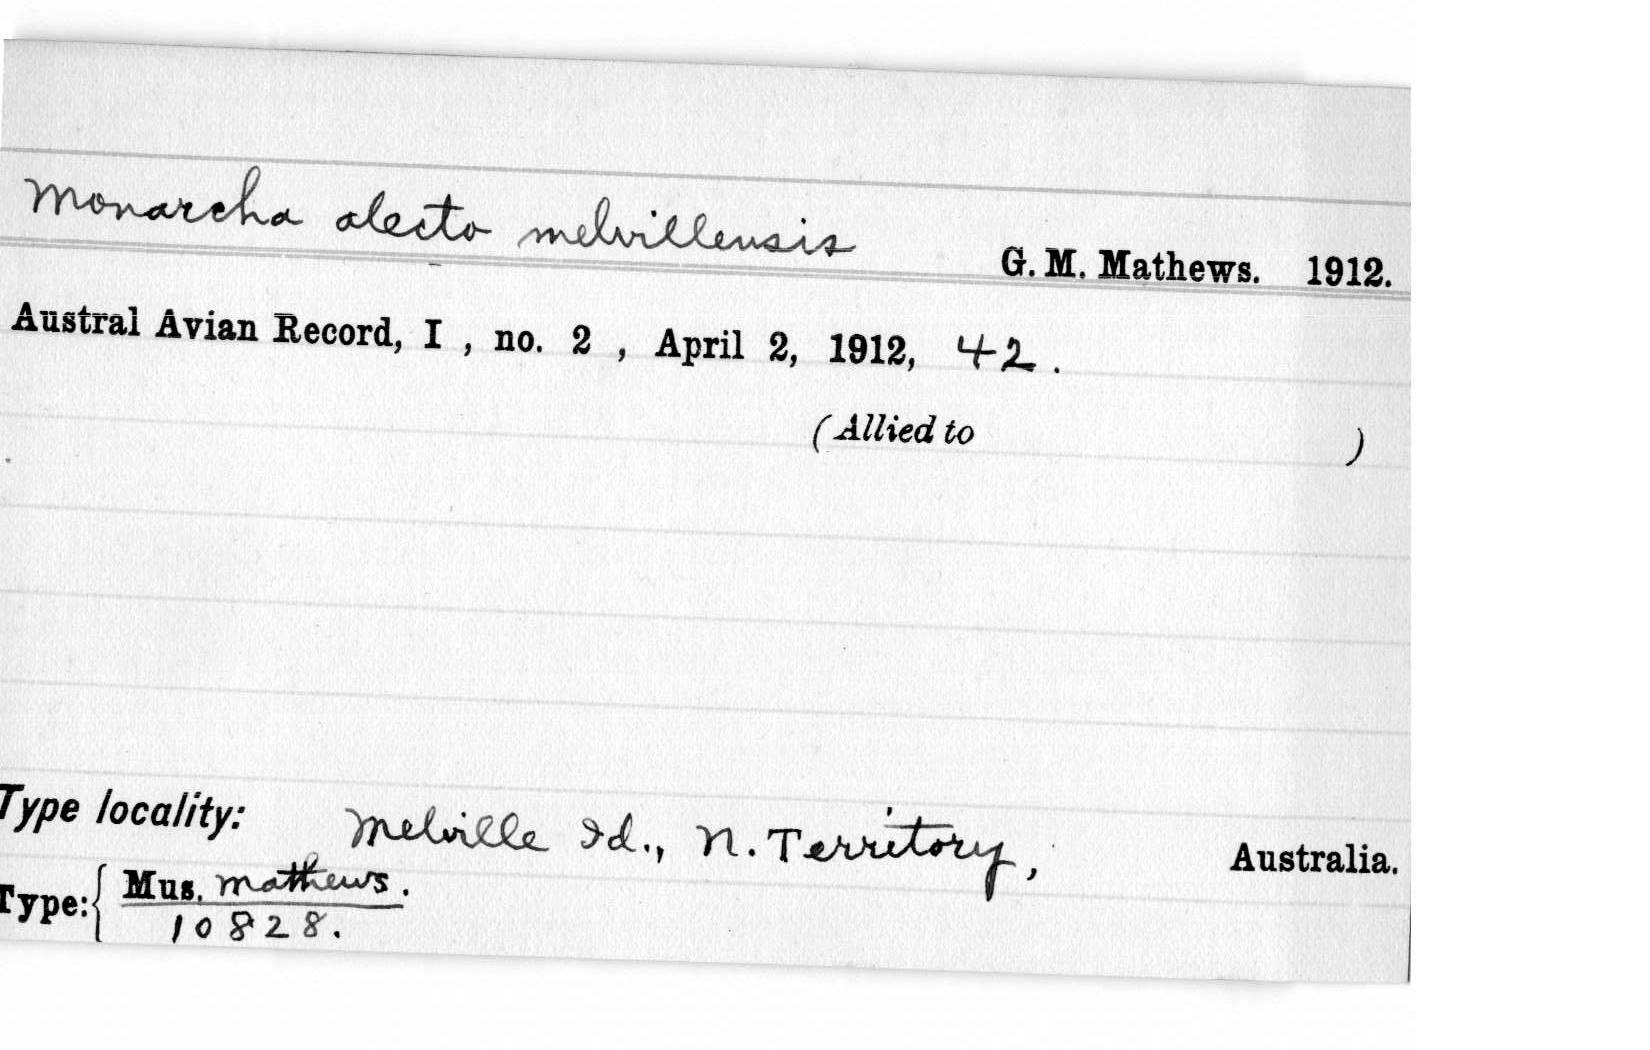 Monarcha alecto melvillensis G. M. Mathews. 1912.
Austral Avian Record, I , no. 2 , April 2, 1912, 42.
(Allied to )
Type locality: Melville Id., N. Territory, Australia.
Type: { Mus. Mathews.
10828.